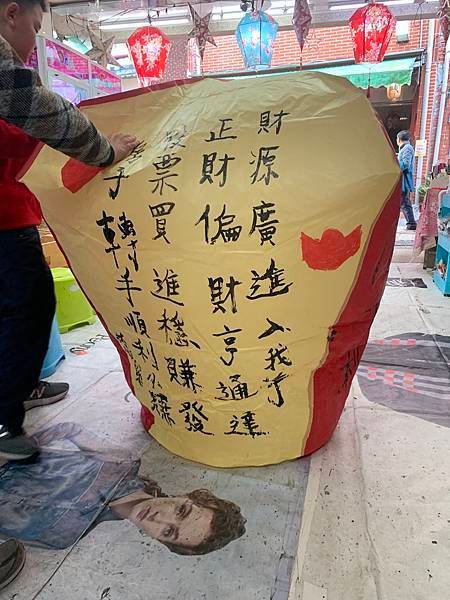 財源廣進入我
正財偏財亨通達
股票買進穩賺發
手轉手順利賺